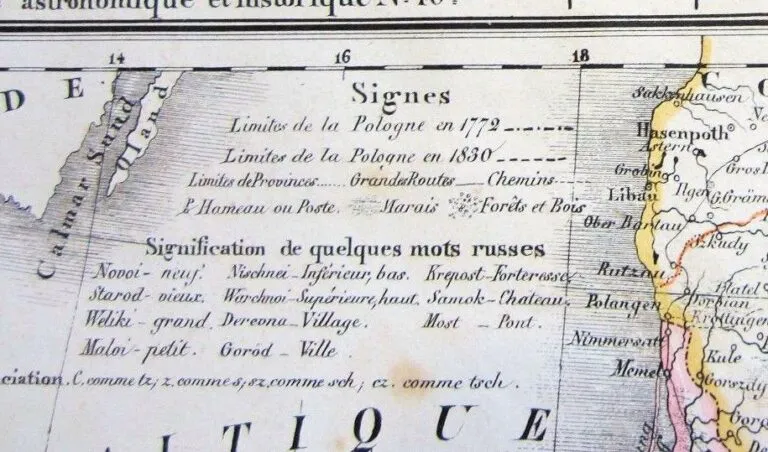 astronomique et historique No. 40.
14 16 18
D E
Calmar Sund
Oland
Signes
Limites de la Pologne en 1772
Limites de la Pologne en 1830
Limites de Provinces...... Grandes Routes — Chemins
P. Hameau ou Poste. Marais Forêts et Bois
Signification de quelques mots russes
Novoi - neuf. Nischnei - Inférieur, bas. Krepost - Forteresse
Starod - vieux. Werchnoi - Supérieure, haut. Samok - Chateau.
Weliki - grand. Derevna - Village. Most - Pont.
Maloi - petit. Gorod - Ville.
ciation. C. comme tz; z. comme s; sz. comme sch; cz. comme tsch.
A L T I Q U E
C O
Sakkenhausen
Hasenpoth
Astern
Grobin
Libau
Ilgen
G. Gräm
Ober Bartau
Szkudy
Rutzau
Platel
Dorbian
Polangen
Krottingen
Nimmersatt
Kule
Memel
Gorszdy